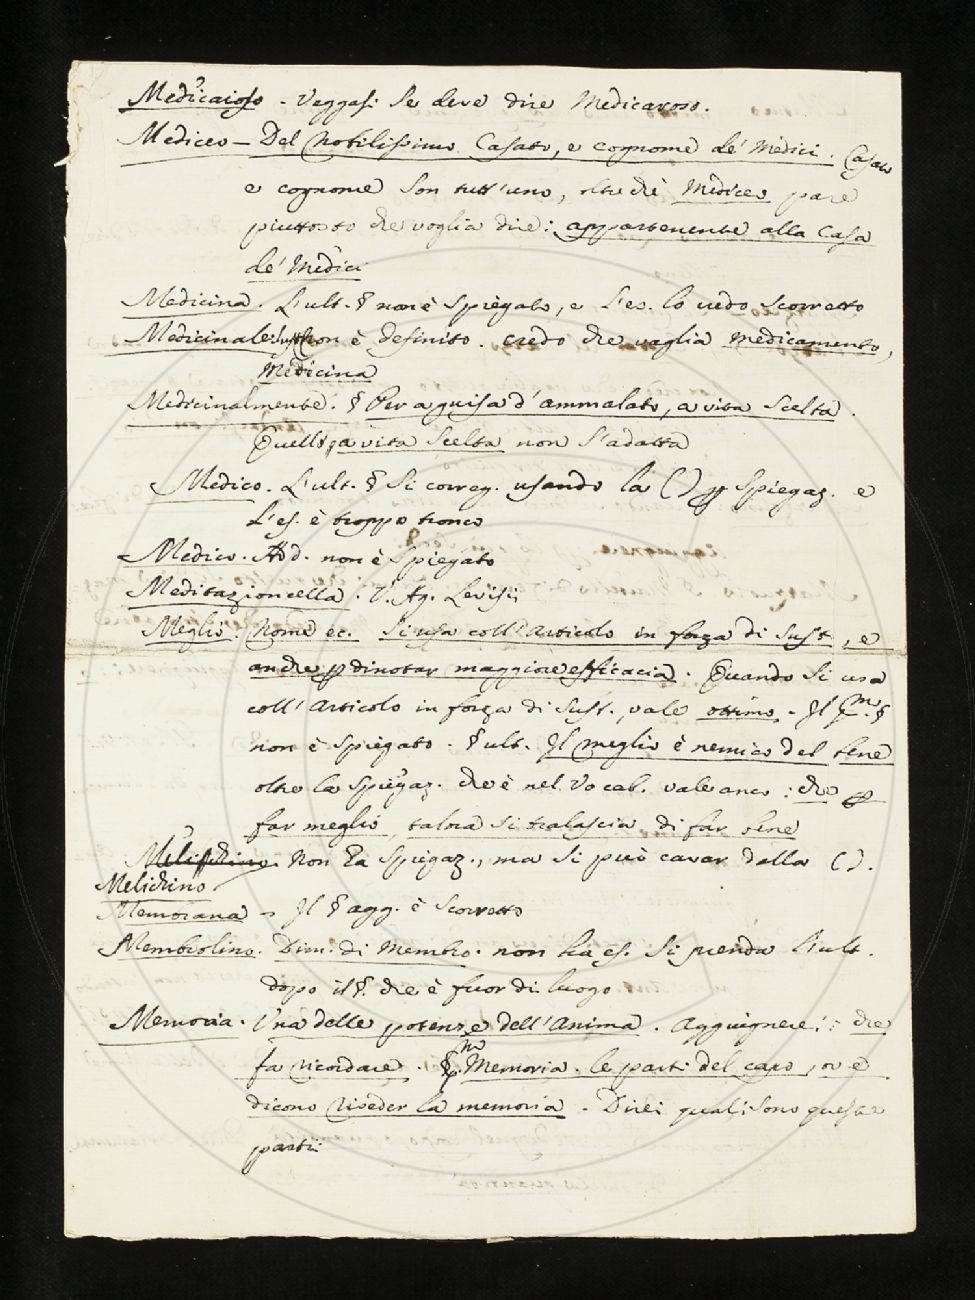 Medicaioso - Veggasi se deve dire Medicaroso.
Mediceo - Del nobilissimo Casato, e cognome de' Medici. Casato
e cognome son tutt'uno, oltrechè Mediceo pare
piuttosto che voglia dire: appartenente alla Casa
de' Medici
Medicina. L'ult. § non è spiegato, e l'es. lo vedo scorretto
Medicinale: sust. non è definito. credo che vaglia medicamento,
Medicina
Medicinalmente. § Per a guisa d'ammalato, a vita scelta.
Quell' a vita scelta non s'adatta
Medico. L'ult. § si correg. usando la ( ) p spiegaz. e
l'es. è troppo tronco
Medico. Add. non è spiegato
Meditazioncella. V. Ag. Levisi
Meglio. Nome ec. Si usa coll'articolo in forza di sust., e
anche p dinotar maggiore efficacia. Quando si usa
coll'articolo in forza di sust., vale ottimo. Il pmo. §
non è spiegato. § ult. Il meglio è nemico del bene
oltre la spiegaz. che è nel Vocab. vale anco: che p
far meglio, talora si tralascia di far bene
non ha spiegaz., ma si può cavar dalla ( ).
Melichino
Membrana - Il § agg. è scorretto
Membrolino. Dim. di Membro. non ha es. Si prenda l'ult.
dopo il §. che è fuor di luogo
Memoria. Una delle potenze dell'Anima. aggiugnere: che
fa ricordare. § pmo. Memoria. le parti del capo, ove
dicono risieder la memoria. Direi quali sono queste
parti